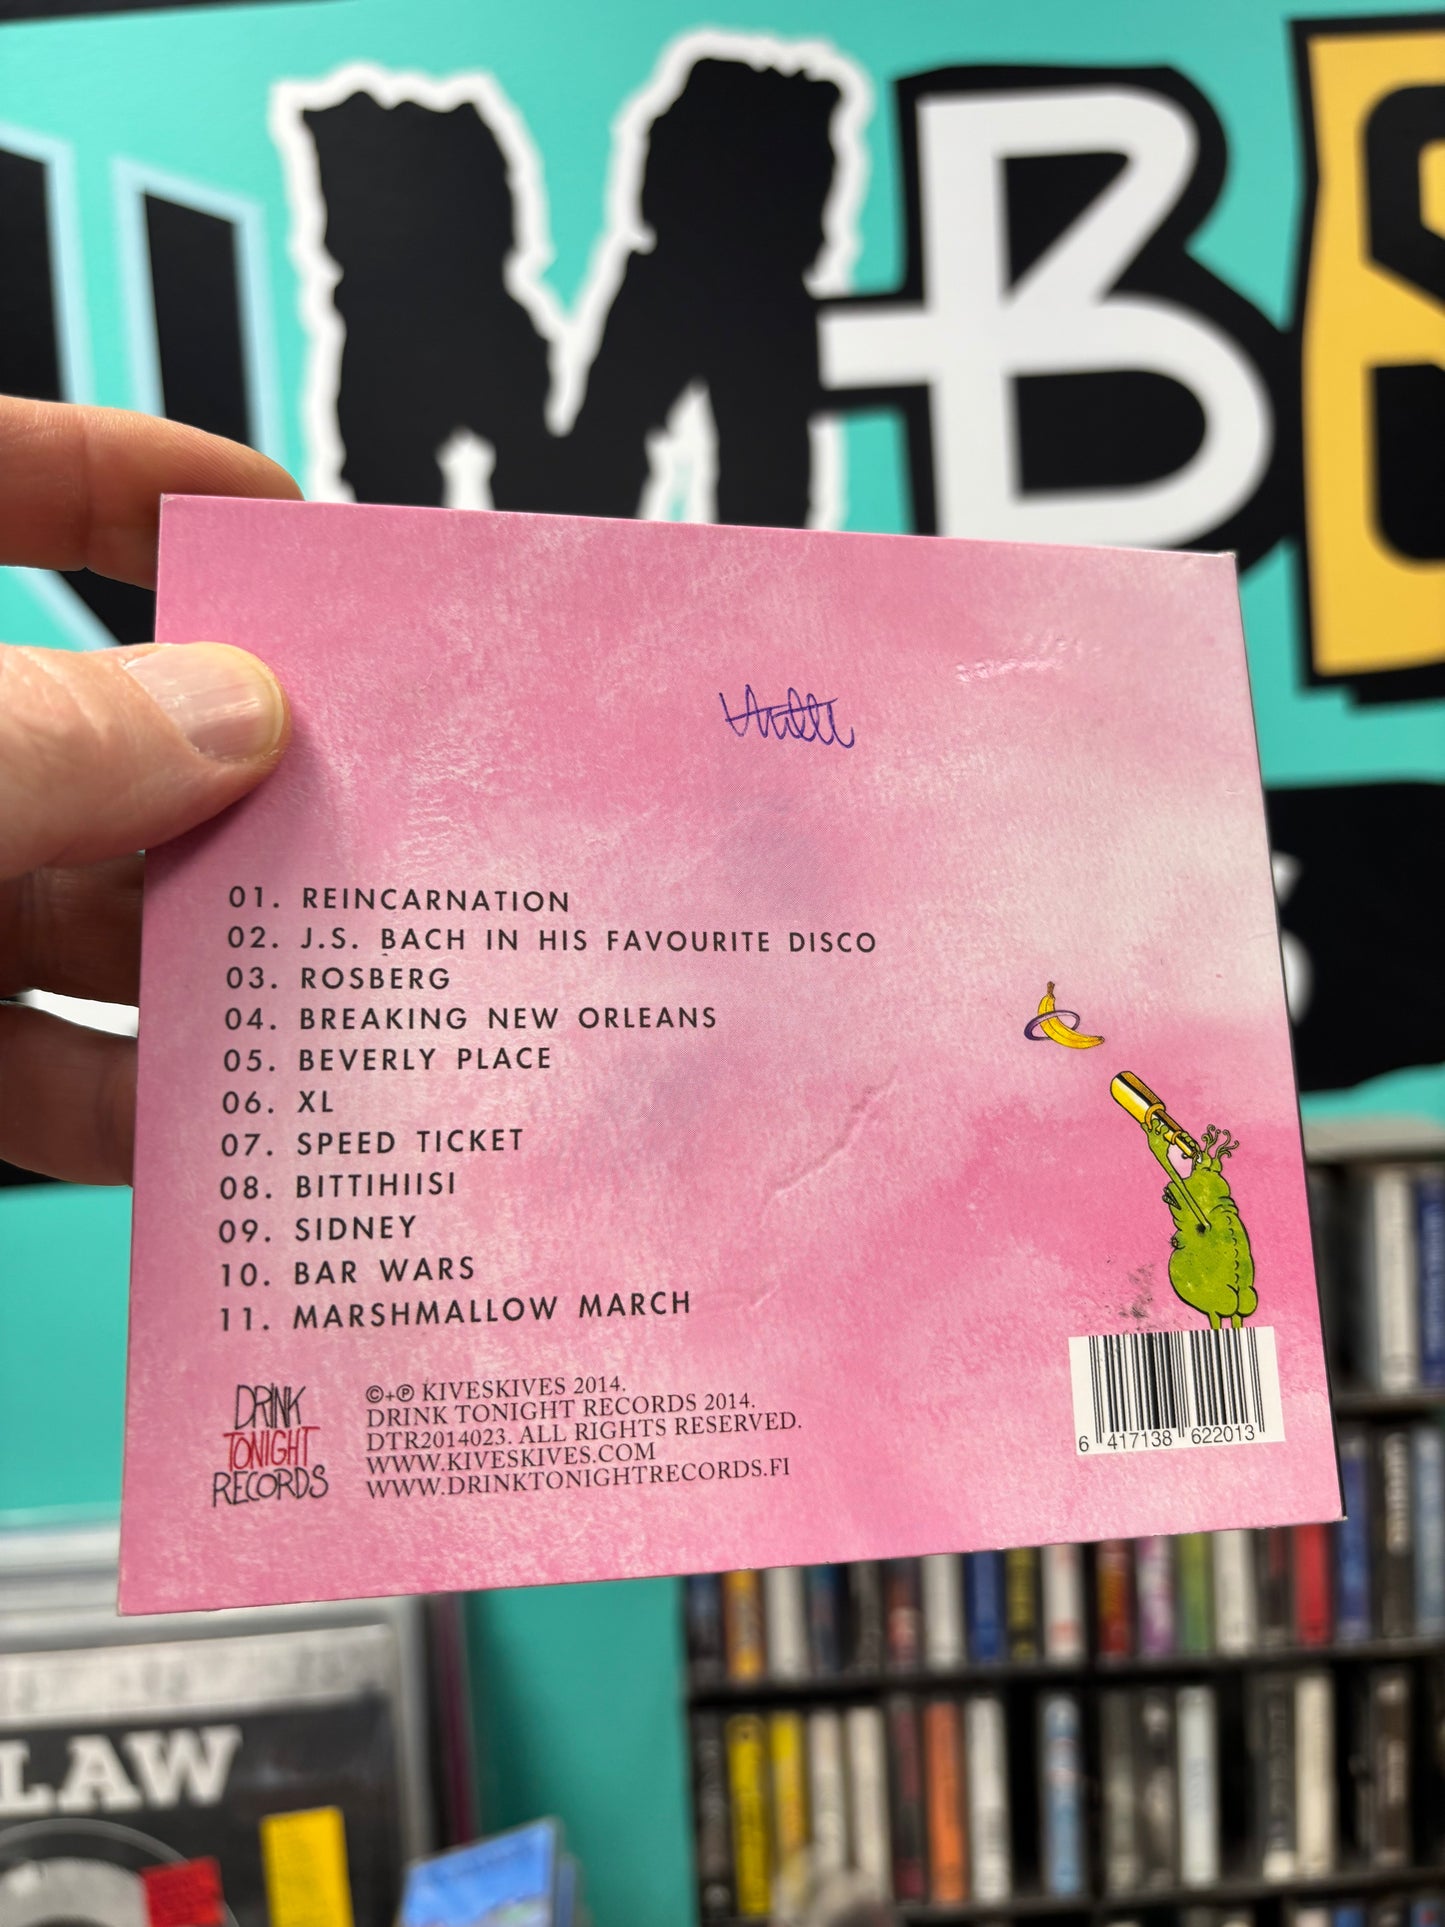 MB
01. REINCARNATION
02. J.S. BACH IN HIS FAVOURITE DISCO
03. ROSBERG
04. BREAKING NEW ORLEANS
05. BEVERLY PLACE
06. XL
07. SPEED TICKET
08. BITTIHIISI
09. SIDNEY
10. BAR WARS
11. MARSHMALLOW MARCH
DRINK
TONIGHT
RECORDS
©+℗ KIVESKIVES 2014.
DRINK TONIGHT RECORDS 2014.
DTR2014023. ALL RIGHTS RESERVED.
WWW.KIVESKIVES.COM
WWW.DRINKTONIGHTRECORDS.FI
6 417138 622013
LAW